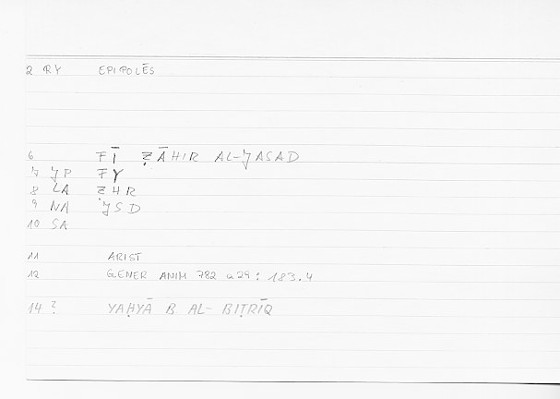 2 RY EPIPOLĒS
6 FĪ ẒĀHIR AL-JASAD
7 JP FY
8 LA ẒHR
9 NA JSD
10 SA
11 ARIST
12 GENER ANIM 782 a29 : 183.4
14 ? YAḤYĀ B AL-BIṬRĪQ